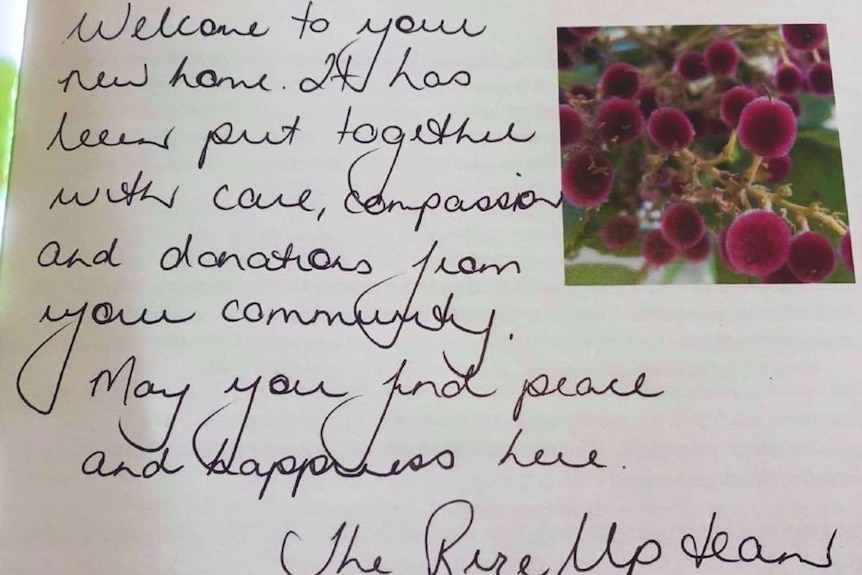 Welcome to your
new home. It has
been put together
with care, compassion
and donations from
your community.
May you find peace
and happiness here.
The Rize Up team